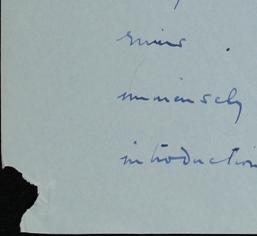 ruins
immensely
introduction